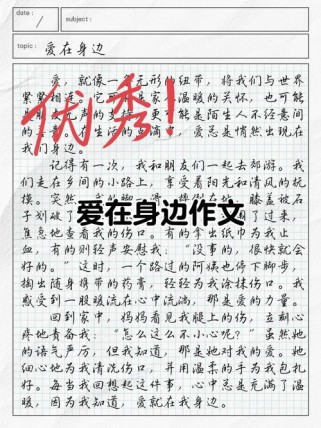 date:
subject:
topic: 爱在身边
爱，就像一 元形的纽带，将我们与世界
紧紧相连。它 是家 温暖的关怀，也可能
是朋友无声的支 更 能是陌生人不经意间
的 在生活的 滴 爱总是悄然出现在
我们身边。
优秀！
记得有一次，我和朋友们一起去郊游。我
们走在乡间的小路上，享受着阳光和清风的抚
摸。突然 的脚 膝盖被石
子划破了 围了过来，
爱在身边作文
焦急地查看我的伤口。有的拿出纸巾为我止
血，有的则轻声安慰我：“没事的，很快就会
好的。”这时，一个路过的阿姨也停下脚步，
掏出随身携带的药膏，轻轻为我涂抹伤口。我
感受到一股暖流在心中流淌，那是爱的力量。
回到家中，妈妈看见我腿上的伤，立刻心
疼地责备我：“怎么这么不小心呢？”虽然她
的语气严厉，但我知道，那是她对我的爱。她
细心地为我清洗伤口，并用温柔的手为我包扎
好。每当我回想起这件事，心中总是充满了温
暖，因为我知道，爱就在我身边。